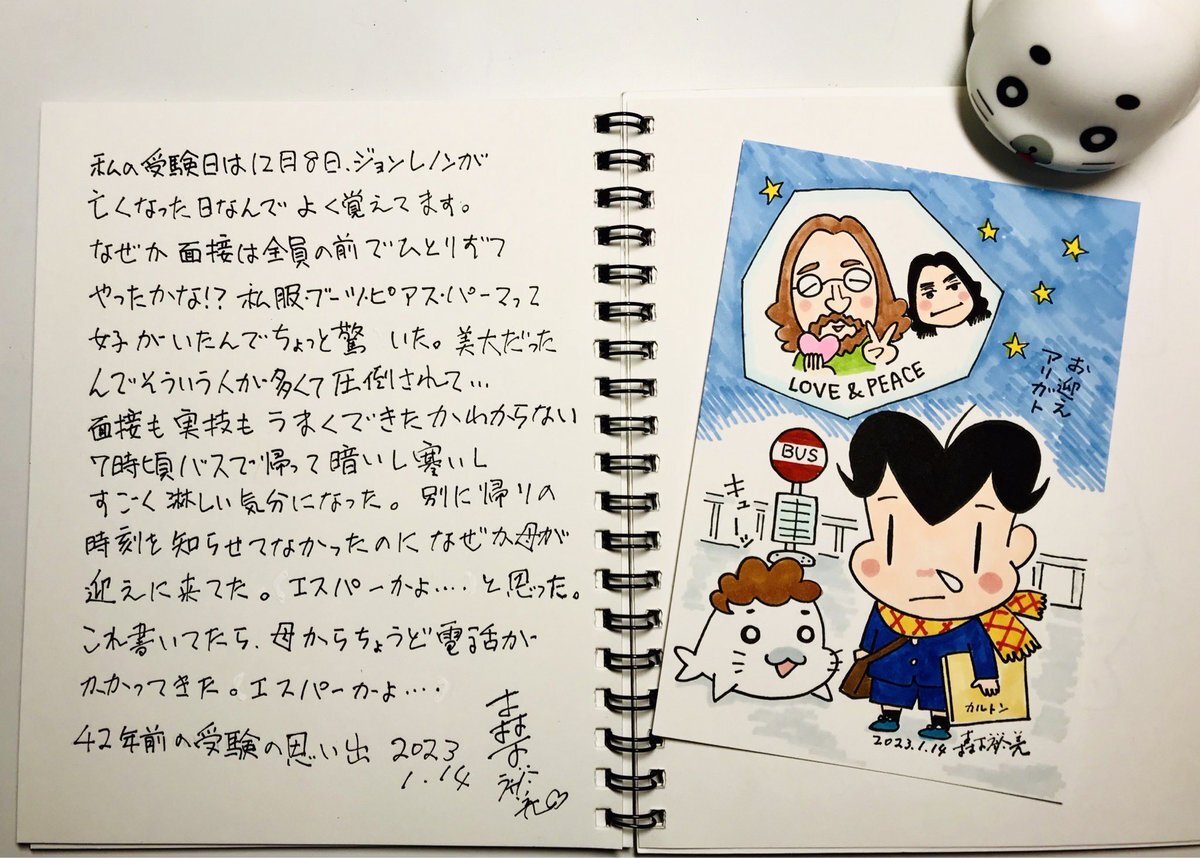 私の受験日は12月8日、ジョンレノンが
亡くなった日なんでよく覚えてます。
なぜか面接は全員の前でひとりずつ
やったかな!? 私服・ブーツ・ピアス・パーマって
女子がいたんでちょっと驚いた。美大だった
んでそういう人が多くて圧倒されて…
面接も実技もうまくできたかわからない
7時頃バスで帰って暗いし寒いし
すごく淋しい気分になった。別に帰りの
時刻を知らせてなかったのになぜか母が
迎えに来てた。エスパーかよ‥‥と思った。
これ書いてたら、母からちょうど電話が
かかってきた。エスパーかよ‥‥
42年前の受験の思い出 2023
1.14
森下裕美
LOVE & PEACE
お迎え
アリガト
BUS
キューッ
カルトン
2023.1.14 森下裕美